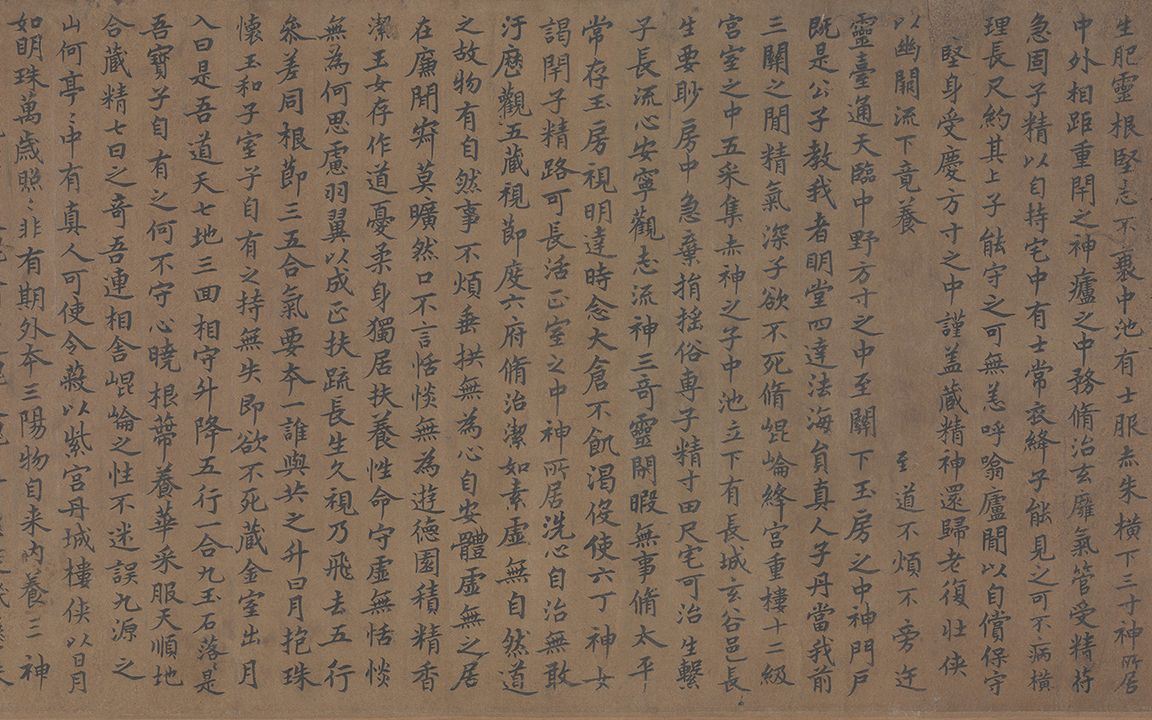 生肥靈根堅志不衰中池有士服赤朱橫下三寸神所居
中外相距重閇之神廬之中務脩治玄膺氣管受精符
急固子精以自持宅中有士常衣絳子能見之可不病橫
理長尺約其上子能守之可無恙呼噏廬閒以自償保守
堅身受慶方寸之中謹盖藏精神還歸老復壯俠
以幽闕流下竟養 至道不煩不旁迕
靈臺通天臨中野方寸之中至關下玉房之中神門戶
既是公子教我者眀堂四達法海負真人子丹當我前
三關之閒精氣深子欲不死脩崐崘絳宮重樓十二級
宮室之中五采集赤神之子中池立下有長城玄谷邑長
生要眇房中急棄捐摇俗専子精寸田尺宅可治生繫
子長流心安寧觀志流神三奇靈閑暇無事脩太平
常存玉房視明達時念大倉不飢渴役使六丁神女
謁閇子精路可長活正室之中神所居洗心自治無敢
汙歷觀五藏視節度六府脩治潔如素虛無自然道
之故物有自然事不煩垂拱無為心自安體虛無之居
在廉閒寂莫曠然口不言恬惔無為遊德園積精香
潔玉女存作道憂柔身獨居扶養性命守虛無恬惔
無為何思慮羽翼以成正扶疏長生久視乃飛去五行
參差同根節三五合氣要夲一誰與共之升日月抱珠
懷玉和子室子自有之持無失即欲不死藏金室出月
入日是吾道天七地三回相守升降五行一合九玉石落〻是
吾寶子自有之何不守心曉根蔕養華采服天順地
合藏精七日之奇吾連相舍崐崘之性不迷誤九源之
山何亭〻中有真人可使令蔽以紫宮丹城樓俠以日月
如眀珠萬歲照〻非有期外夲三陽物自来內養三神